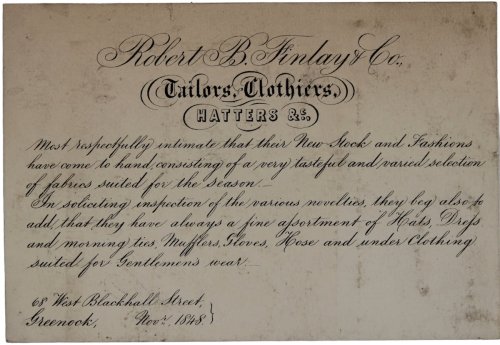 Robert B. Finlay & Co.,
Tailors, Clothiers,
HATTERS &c.
Most respectfully intimate that their New Stock and Fashions
have come to hand, consisting of a very tasteful and varied selection
of fabrics suited for the season.—
In soliciting inspection of the various novelties, they beg also to
add, that they have always a fine assortment of Hats, Dress
and morning ties, Mufflers, Gloves, Hose and under Clothing
suited for Gentlemens wear.—
68 West Blackhall Street,
Greenock, Novr. 1848.}